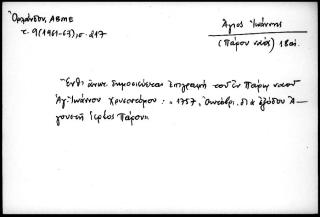 Ὀρλάνδου, ΑΒΜΕ
τ. 9 (1961-63), σ. 217
Ἅγιος Ἰωάννης
(Πάρου νῆσος) 1801.
Ἔνθ' ἀνωτ. δημοσιεύεται ἐπιγραφή τοῦ ἐν Πάρῳ ναοῦ
Ἁγ. Ἰωάννου Χρυσοστόμου: " 1757, Ὀκτωβρί. διά ἐξόδου
Ἱερέως Πάρου"